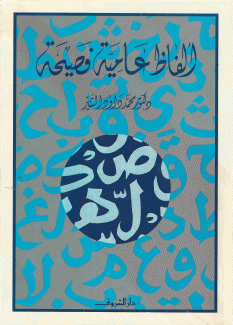 الفاظ عامية فصيحة
دكتور محمد داود التنير
دار الشروق